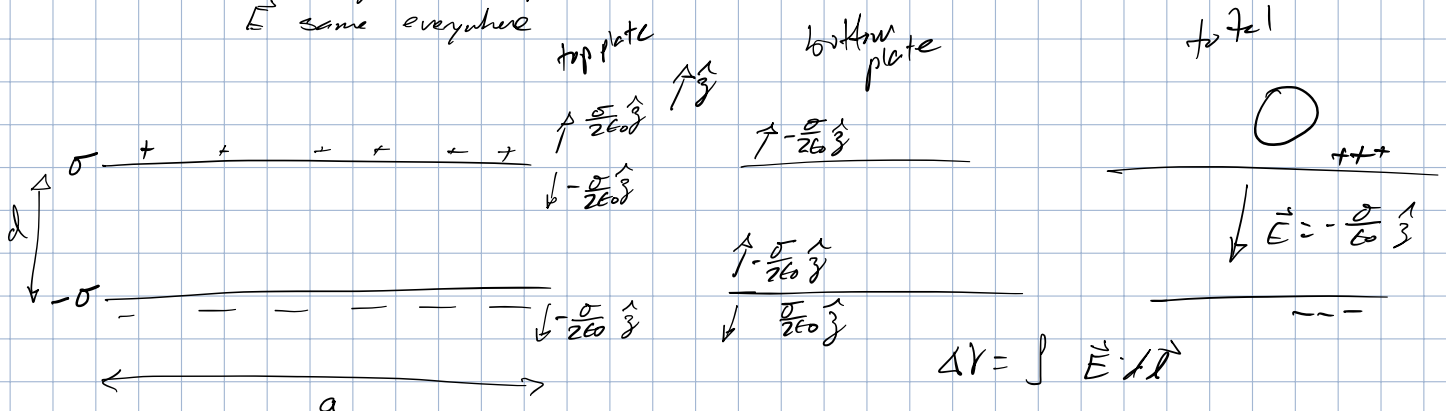 E⃗ same everywhere
top plate
bottom plate
total
↑ ẑ
↑ σ/2ε₀ ẑ
↑ -σ/2ε₀ ẑ
σ + + + + + +
↓ -σ/2ε₀ ẑ
+++
d
↓ E⃗ = -σ/ε₀ ẑ
↑ -σ/2ε₀ ẑ
-σ
− − − − − −
↓ -σ/2ε₀ ẑ
↓ σ/2ε₀ ẑ
− − −
ΔV = ∫ E⃗ · dl⃗
a